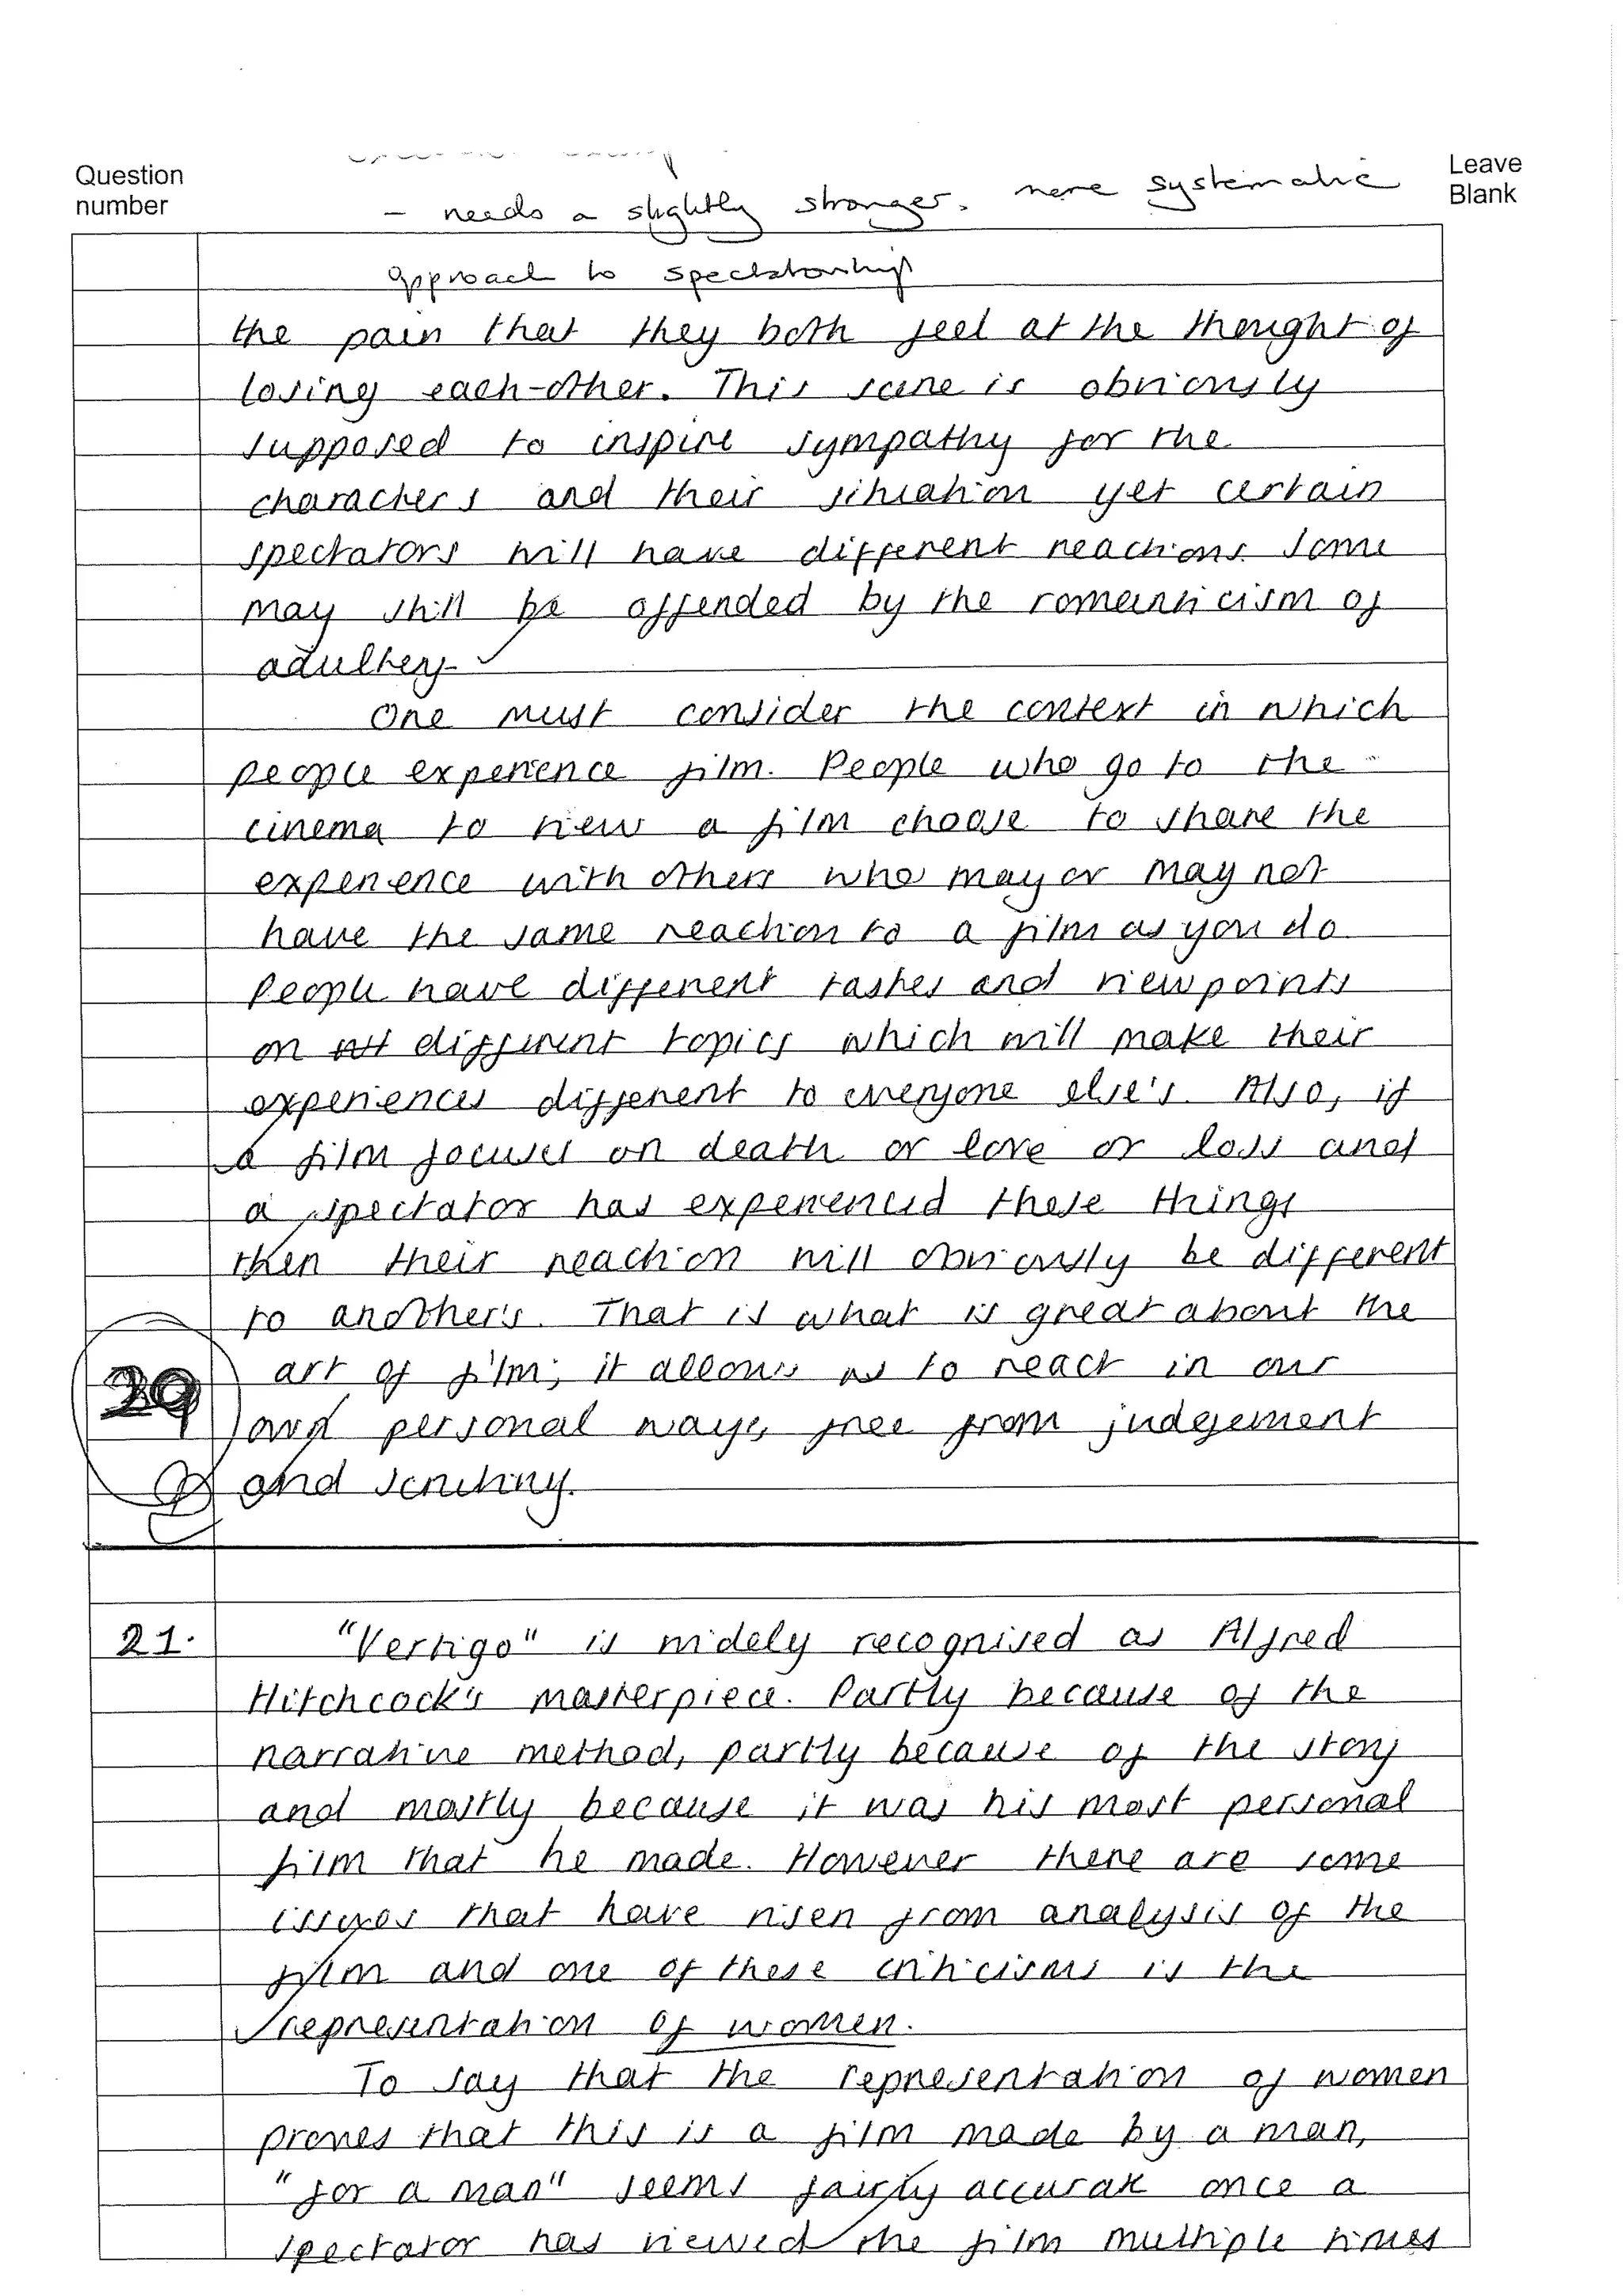 Question
number
Leave
Blank
- needs a slightly stronger, more systematic
approach to spectatorship
the pain that they both feel at the thought of
losing each-other. This scene is obviously
supposed to inspire sympathy for the
characters and their situation yet certain
spectators will have different reactions. Some
may still be offended by the romanticism of
adultery.
One must consider the context in which
people experience film. People who go to the
cinema to view a film choose to share the
experience with others who may or may not
have the same reaction to a film as you do.
People have different tastes and viewpoints
on different topics which will make their
experiences different to everyone else's. Also, if
a film focuses on death or love or loss and
a spectator has experienced these things
then their reaction will obviously be different
to another's. That is what is great about the
art of film; it allows us to react in our
own personal ways, free from judgement
and scrutiny.
29
21.
"Vertigo" is widely recognised as Alfred
Hitchcock's masterpiece. Partly because of the
narrative method, partly because of the story
and mostly because it was his most personal
film that he made. However there are some
issues that have risen from analysis of the
film and one of these criticisms is the
representation of women.
To say that the representation of women
proves that this is a film made by a man,
"for a man" seems fairly accurate once a
spectator has viewed the film multiple times